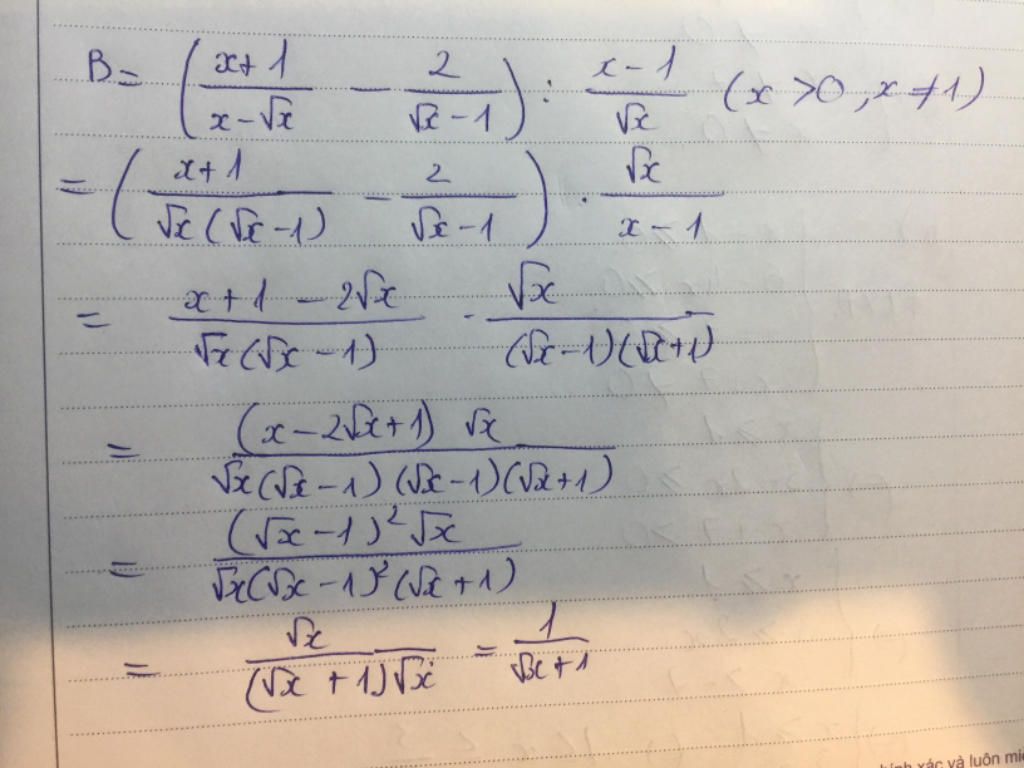 B = ( (x+1)/(x-√x) - 2/(√x-1) ) : (x-1)/√x (x >0, x ≠1)
= ( (x+1)/(√x(√x-1)) - 2/(√x-1) ) . √x/(x-1)
= (x+1-2√x)/(√x(√x-1)) . √x/((√x-1)(√x+1))
= ((x-2√x+1) √x)/(√x(√x-1)(√x-1)(√x+1))
= ((√x-1)² √x)/(√x(√x-1)²(√x+1))
= √x/((√x+1)√x) = 1/(√x+1)
xác và luôn